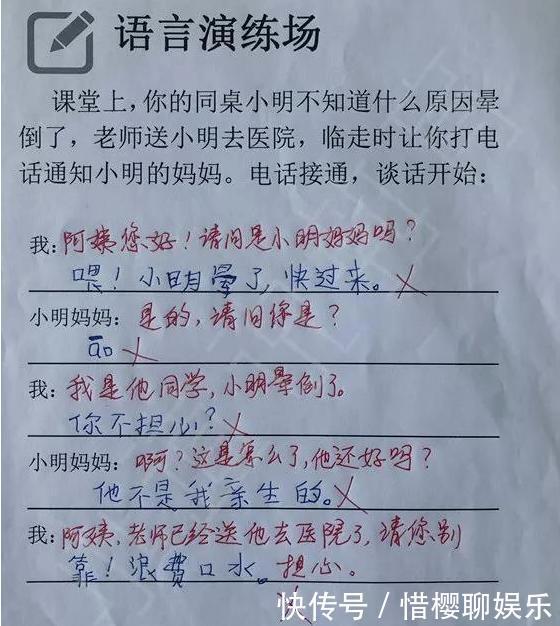 语言演练场
课堂上,你的同桌小明不知道什么原因晕
倒了,老师送小明去医院,临走时让你打电
话通知小明的妈妈。电话接通,谈话开始:
我:阿姨您好!请问是小明妈妈吗?
喂!小明晕了,快过来。
小明妈妈:是的,请问你是?
哦
我:我是他同学,小明晕倒了。
你不担心?
小明妈妈:啊?这是怎么了,他还好吗?
他不是我亲生的。
我:阿姨,老师已经送他去医院了,请您别
靠!浪费口水。担心。
快传号/惜樱聊娱乐